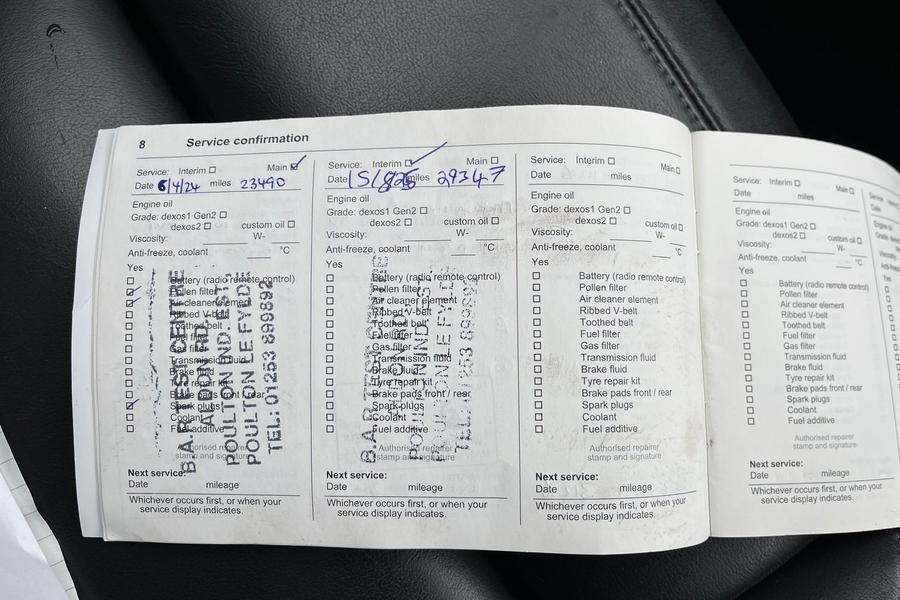 8 Service confirmation
Service: Interim Main
Date 6/4/24 miles 23490
Engine oil
Grade: dexos1 Gen2
dexos2 custom oil
Viscosity: W-
Anti-freeze, coolant °C
Yes
Battery (radio remote control)
Pollen filter
Air cleaner element
Ribbed V-belt
Toothed belt
Fuel filter
Gas filter
Transmission fluid
Brake fluid
Tyre repair kit
Brake pads front / rear
Spark plugs
Coolant
Fuel additive
POULTON IND. EST.
POULTON LE FYLDE
TEL: 01253 899892
Authorised repairer
stamp and signature
Next service:
Date mileage
Whichever occurs first, or when your
service display indicates.
Service: Interim Main
Date miles 29347
Engine oil
Grade: dexos1 Gen2
dexos2 custom oil
Viscosity: W-
Anti-freeze, coolant °C
Yes
Battery (radio remote control)
Pollen filter
Air cleaner element
Ribbed V-belt
Toothed belt
Fuel filter
Gas filter
Transmission fluid
Brake fluid
Tyre repair kit
Brake pads front / rear
Spark plugs
Coolant
Fuel additive
Authorised repairer
stamp and signature
Next service:
Date mileage
Whichever occurs first, or when your
service display indicates.
Service: Interim Main
Date miles
Engine oil
Grade: dexos1 Gen2
dexos2 custom oil
Viscosity: W-
Anti-freeze, coolant °C
Yes
Battery (radio remote control)
Pollen filter
Air cleaner element
Ribbed V-belt
Toothed belt
Fuel filter
Gas filter
Transmission fluid
Brake fluid
Tyre repair kit
Brake pads front / rear
Spark plugs
Coolant
Fuel additive
Authorised repairer
stamp and signature
Next service:
Date mileage
Whichever occurs first, or when your
service display indicates.
Service: Interim Main
Date miles
Engine oil
Grade: dexos1 Gen2
dexos2 custom oil
Viscosity: W-
Anti-freeze, coolant °C
Yes
Battery (radio remote control)
Pollen filter
Air cleaner element
Ribbed V-belt
Toothed belt
Fuel filter
Gas filter
Transmission fluid
Brake fluid
Tyre repair kit
Brake pads front / rear
Spark plugs
Coolant
Fuel additive
Authorised repairer
stamp and signature
Next service:
Date mileage
Whichever occurs first, or when your
service display indicates.